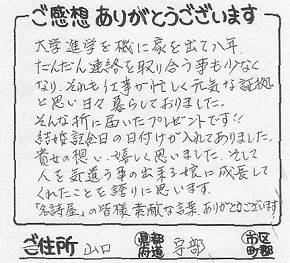 ご感想 ありがとうございます
大学進学を機に家を出て八年、
だんだん連絡を取り合う事も少なく
なり、それも仕事が忙しく元気な証拠
と思い日々暮らしておりました。
そんな折に届いたプレゼントです!!
結婚記念日の日付けが入れてありました。
貴女の想い、嬉しく思いました。そして
人を近遣う事の出来る娘に成長して
くれたことを誇りに思います。
「名詩屋」の皆様 素敵な言葉、ありがとうございます
ご住所 山口 都道府県 宇部 市区町郡